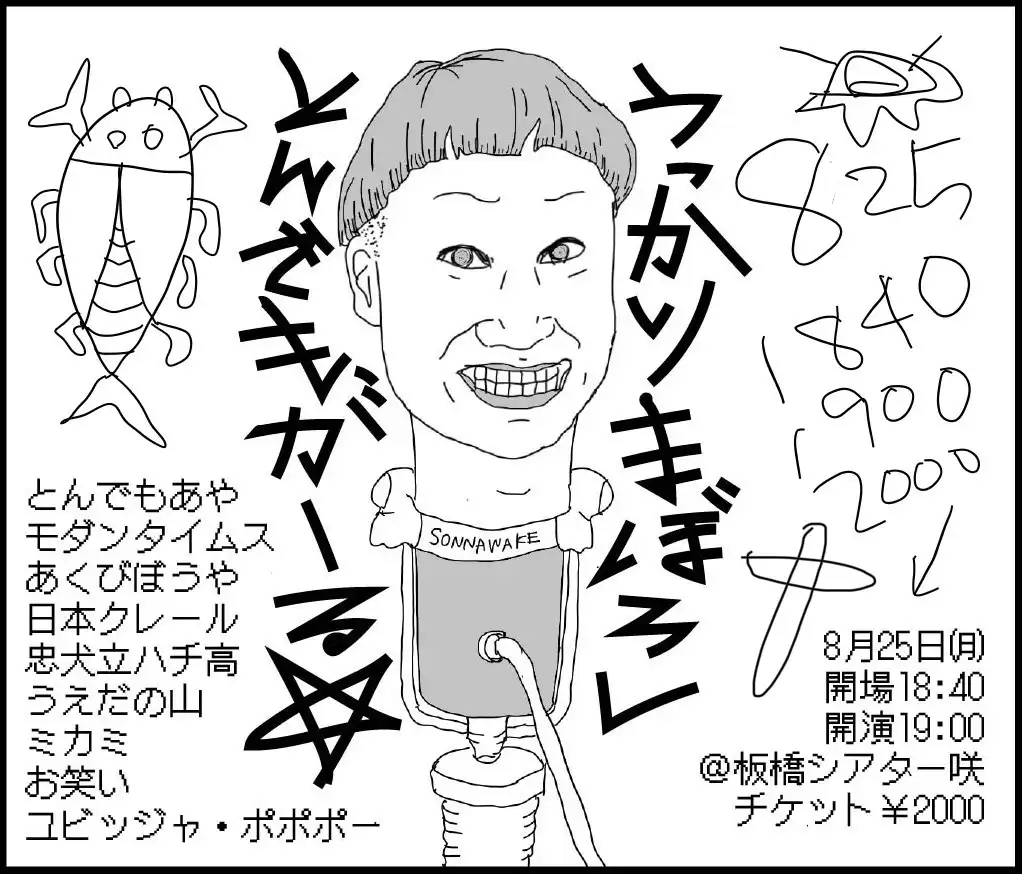 うっかりまぼろし
とんでもガール☆
825
1840
1900
2000
SONNAWAKE
とんでもあや
モダンタイムス
あくびぼうや
日本クレール
忠犬立ハチ高
うえだの山
ミカミ
お笑い
ユビッジャ・ポポポー
8月25日(月)
開場18:40
開演19:00
@板橋シアター咲
チケット￥2000